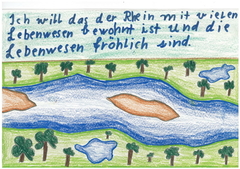 Ich will das der Rhein mit vielen
Lebenwesen bewohnt ist und die
Lebenwesen fröhlich sind.